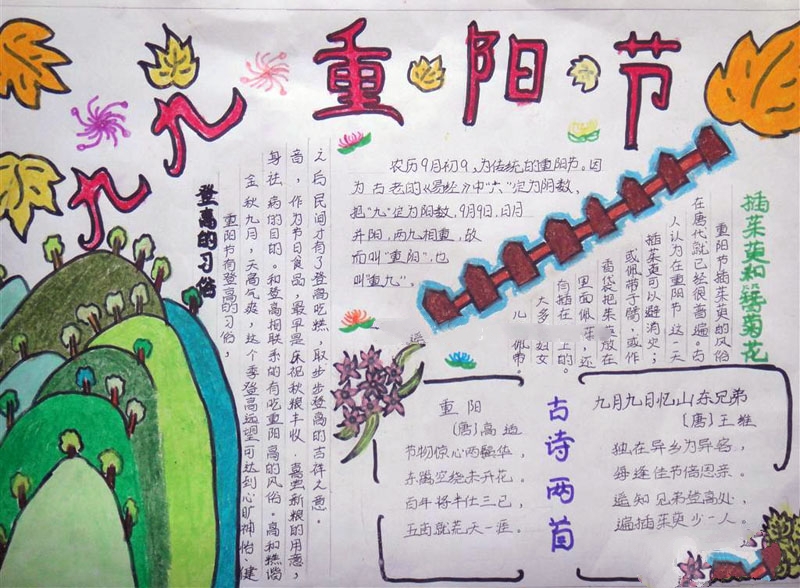 九九重阳节
农历9月初9,为传统的重阳节。因
为古老的《易经》中"六"定为阴数,
把"九"定为阳数,9月9日,日月
并阳,两九相重,故
而叫"重阳",也
叫"重九"。
登高的习俗
重阳节有登高的习俗,
金秋九月,天高气爽,这个季登高远望可达到心旷神怡 健
身祛病的目的。和登高相联系的有吃重阳高的风俗。高和糕谐
音,作为节日食品,最早是庆祝秋粮丰收 喜尝新粮的用意,
之后民间才有了登高吃糕,取步步登高的吉祥之意。
插茱萸和簪菊花
重阳节插茱萸的风俗
在唐代就已经很普遍。古
人认为在重阳节 这一天
插茱萸可以避消灾;
或佩带于臂,或作
香袋把茱 放在
里面佩 ,还
有插在 上的。
大多 妇女
儿 佩带
古诗两首
重阳
〔唐〕高适
节物惊心两鬓华,
东篱空绕未开花。
百年将半仕三已,
五亩就荒天一涯。
九月九日忆山东兄弟
〔唐〕王维
独在异乡为异客,
每逢佳节倍思亲。
遥知兄弟登高处,
遍插茱萸少一人。